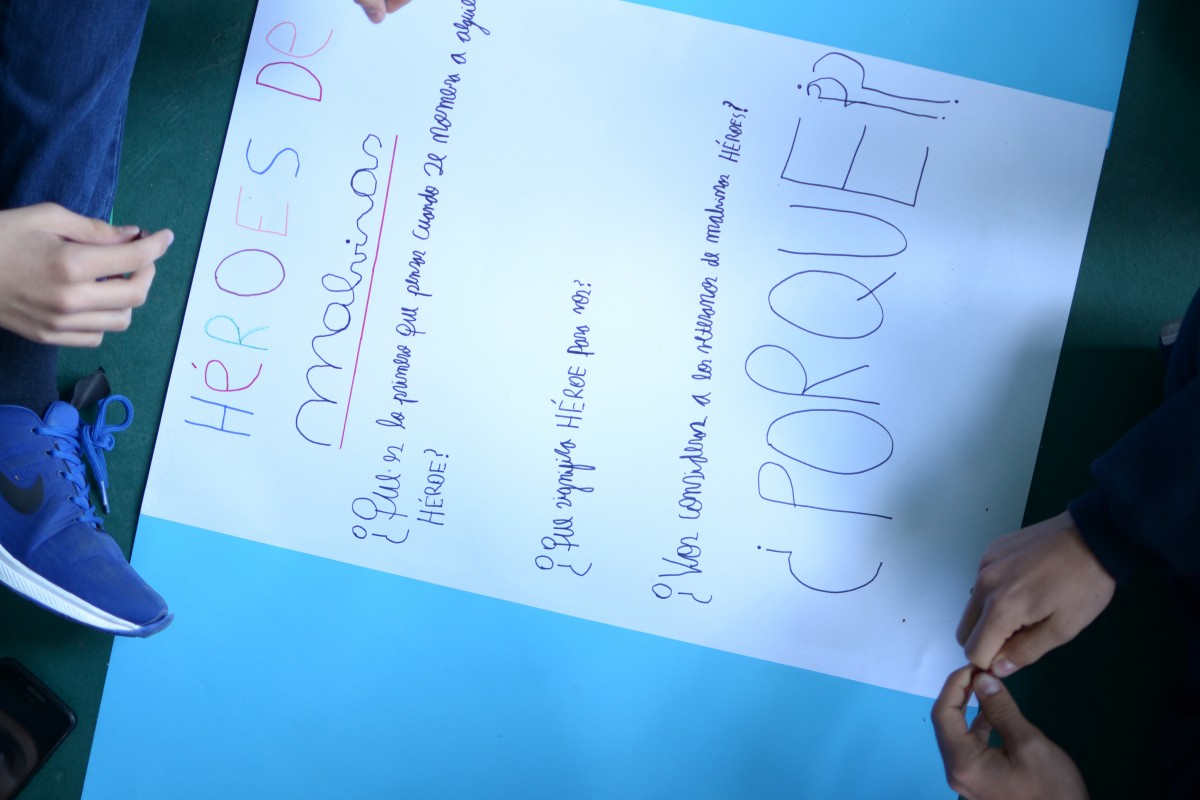 HÉROES DE
Malvinas
¿Que es lo primero que pensas cuando se nombra a
HÉROE?
¿Que significa HÉROE para vos?
¿Vos consideras a los veteranos de malvinas HÉROES?
¿PORQUE??